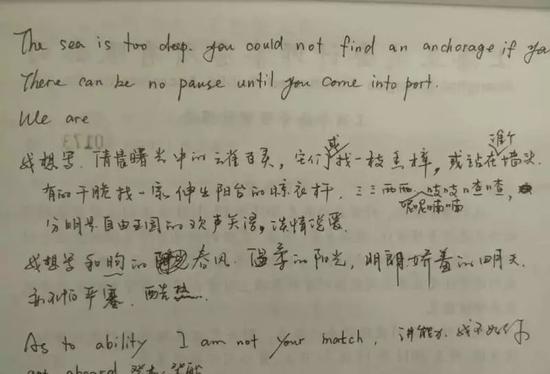 The sea is too deep. you could not find an anchorage if you
There can be no pause until you come into port.
We are
0173
我想写. 清晨曙光中的云雀百灵, 它们或找一枝香樟, 或站在谁个墙头.
有的干脆找一家伸出阳台的晾衣杆, 三三两两 吱吱喳喳,
呢呢喃喃
分明是自由王国的欢声笑语, 谈情说爱.
我想写和煦的春风. 温季的阳光, 明朗娇羞的四月天.
酷热.
As to ability I am not your match. 讲能力, 我不如你
get aboard